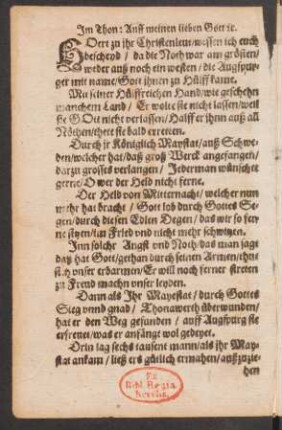 Im Thon: Auff meinen lieben Gott ꝛc.
HOert zu ihr Christenleut / wessen ich euch
bescheyd / da die Noth war am grösten /
weder auß noch ein westen / die Augspur-
ger mit name / Gott ihnen zu Hülff kame.
Mit seiner Hülffreichen Hand / wie geschehen
manchem Land / Er wolte sie nicht lassen / weil
sie GOtt nicht verlassen / Halff er ihnn auß all
Nöthen / thett sie bald erretten.
Durch ir Königlich Maystat / auß Schwe-
den / welcher hat / daß groß Werck angefangen /
darzu grosses verlangen / Jederman wünschet
gerne / O wer der Held nicht ferne.
Der Held von Mitternacht / welcher nun
mehr hat bracht / Gott lob durch Gottes Se-
gen / durch diesen Edlen Degen / das wir so fer-
ne im Fried vnd nicht mehr schwitzen.
Inn solche Angst vnd Noth / das man jagt
Hat Gott / gethan durch seinen Armen /
vnser erbarmen / Er will noch ferner streten
zu Freud machn vnser leyden.
Dann als Ihr Mayestat / durch Gottes
Sieg vnnd gnad / Thonawerth überwunden /
hat er den Weg gefunden / auff Augspurg sie
erfrewet / was er anfängt wol gedeyet.
Drin lag sechs tausent mann / als ihr May-
stat ankam / ließ ers gütlich ermahnen / außzuzie-
hen
Ex
Bibl. Regia
Berolin.